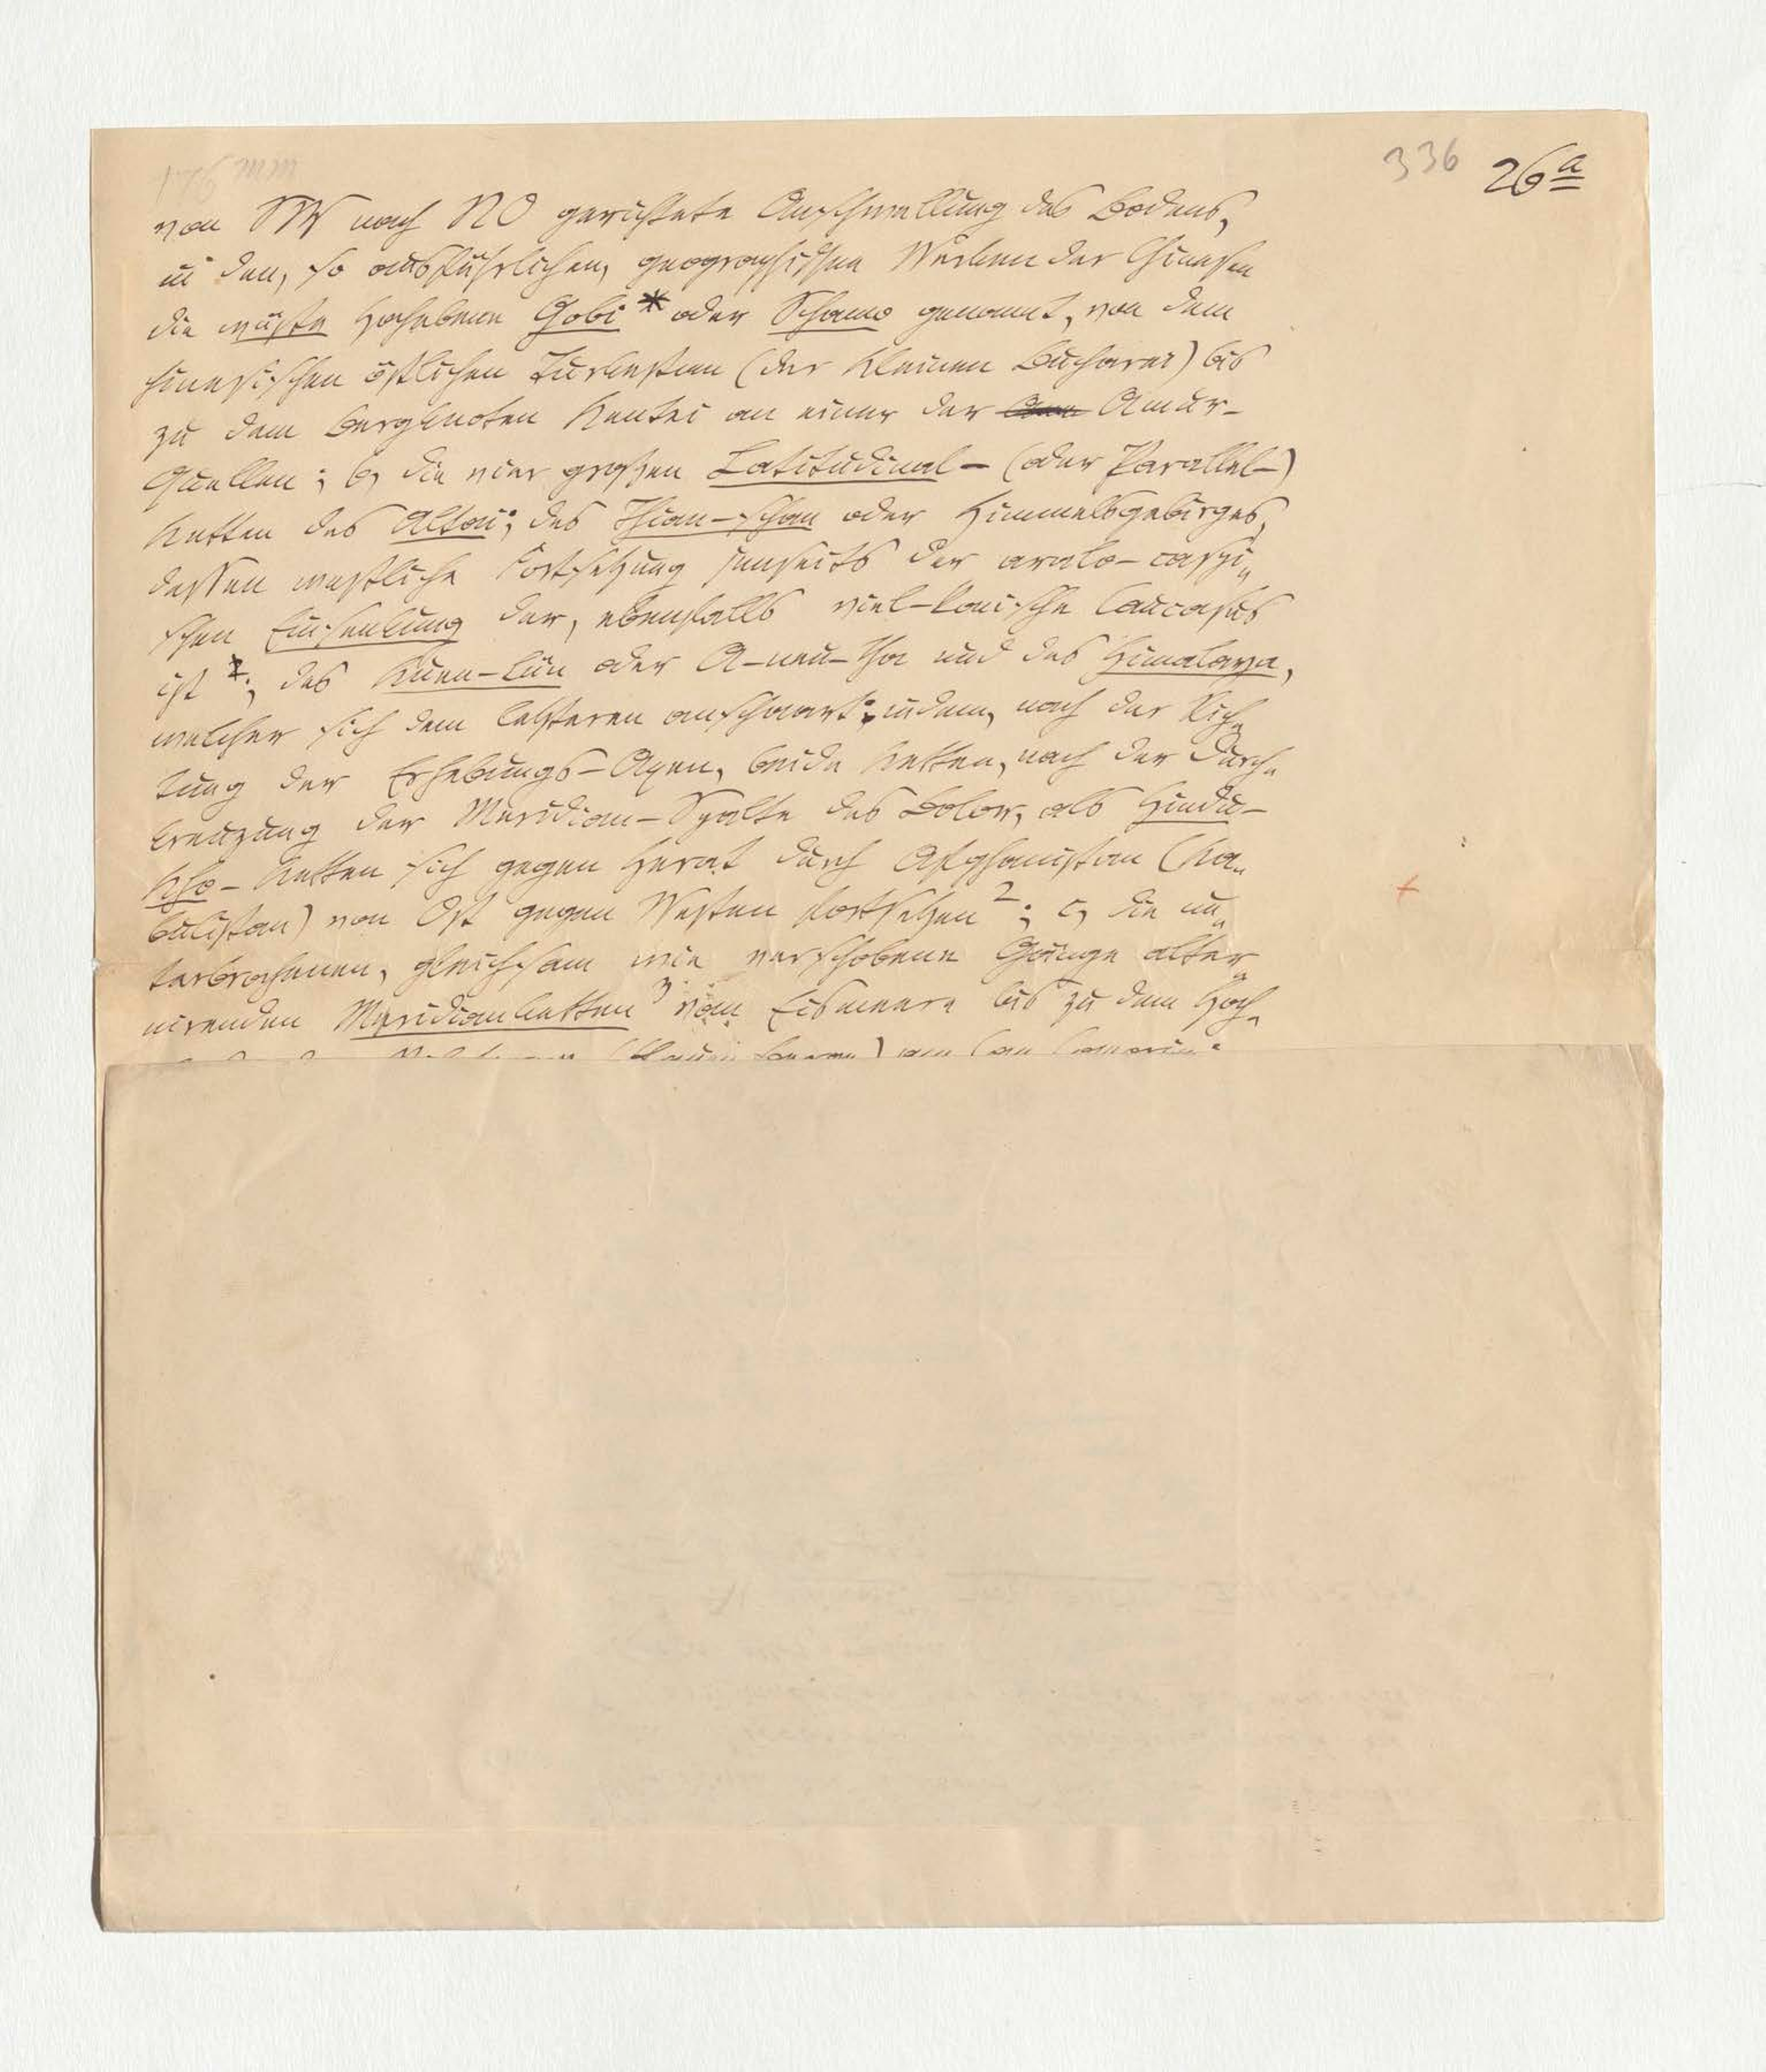 336 26a
von SW nach NO gerichtete Anschwellung des Bodens,
in den, so ausführlichen, geographischen Werken der Chinesen
die wüste Hochebene Gobi * oder Schamo genannt, von dem
chinesischen östlichen Turkestan (der kleinen Bucharei) bis
zu dem Bergknoten Kentei an einer der Amur-
Quellen; b, die vier großen Latitudinal- (oder Parallel-)
Ketten des Altai; des Thian-schan oder Himmelsgebirges,
dessen westliche Fortsetzung jenseits der aralo-caspi„
schen Einsenkung der, ebenfalls vulkanische Caucasus
ist; des Kuen-lün oder A-neu-tha und des Himalaya,
welcher sich dem letzteren anschaart: indem, nach der Rich„
tung der Erhebungs-Axen, beide Ketten, nach der Durch„
kreuzung der Meridian-Spalte des Bolor, als Hindu-
Kho-Ketten sich gegen Herat durch Afghanistan (Ka„
bulistan) von Ost gegen Westen fortsetzen 2; c, die un„
terbrochenen, gleichsam wie verschobene Gänge alter„
nirenden Meridianketten 3 vom Eismeere bis zu dem Hoch„